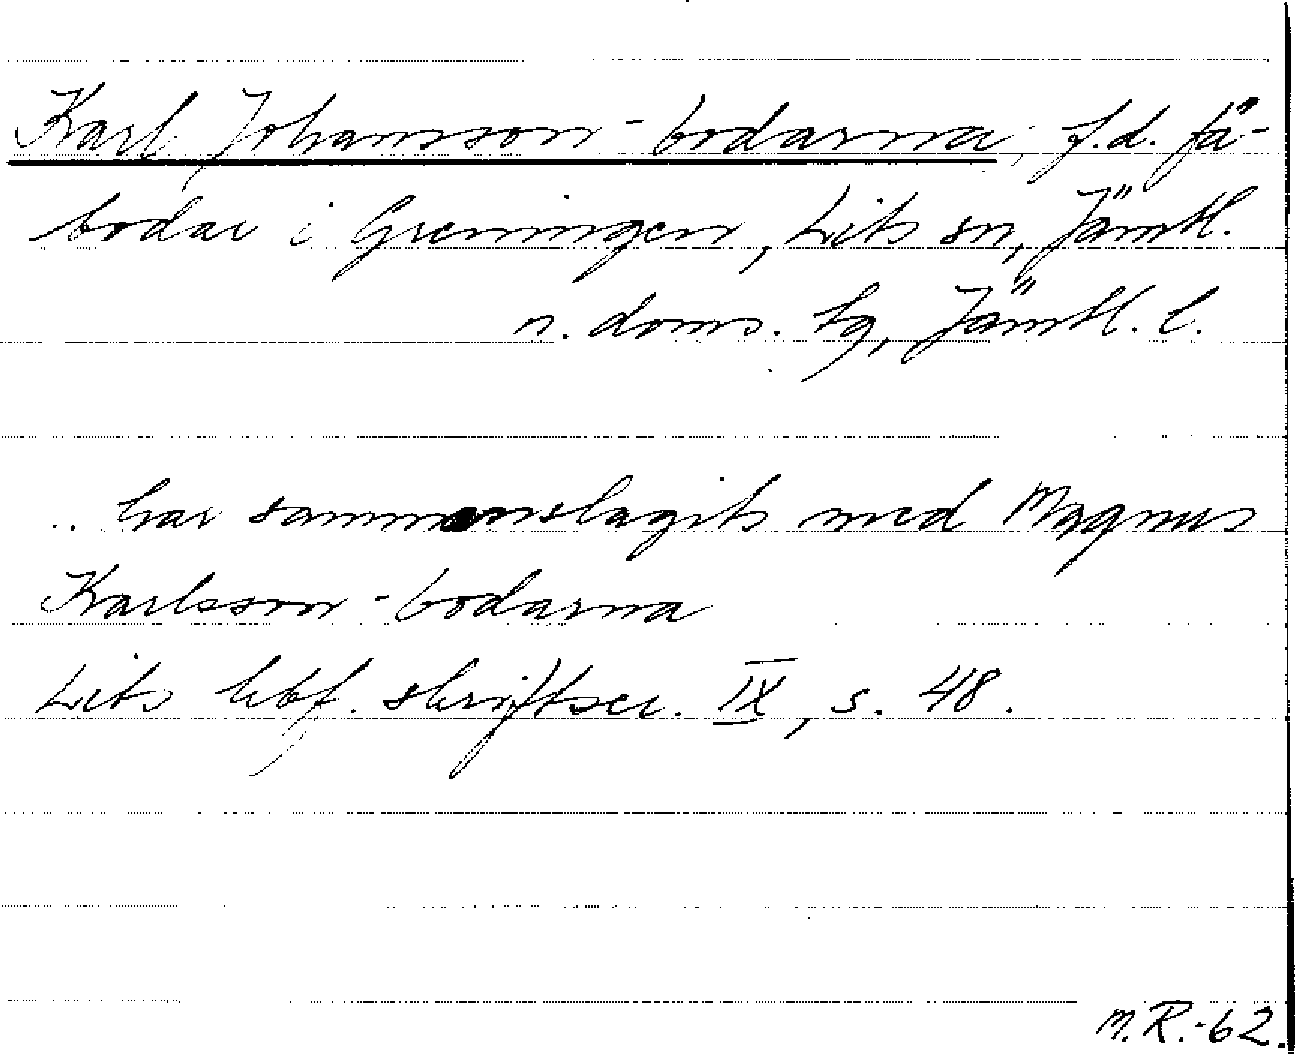 Karl Johansson-bodarna, f.d. fä-
bodar i Greningen, Lits sn, Jämtl.
n. doms. tg, Jämtl. l.
.. har sammanslagits med Magnus
Karlsson-bodarna
Lits hbf. skriftser. IX, s. 48.
M.R.-62.